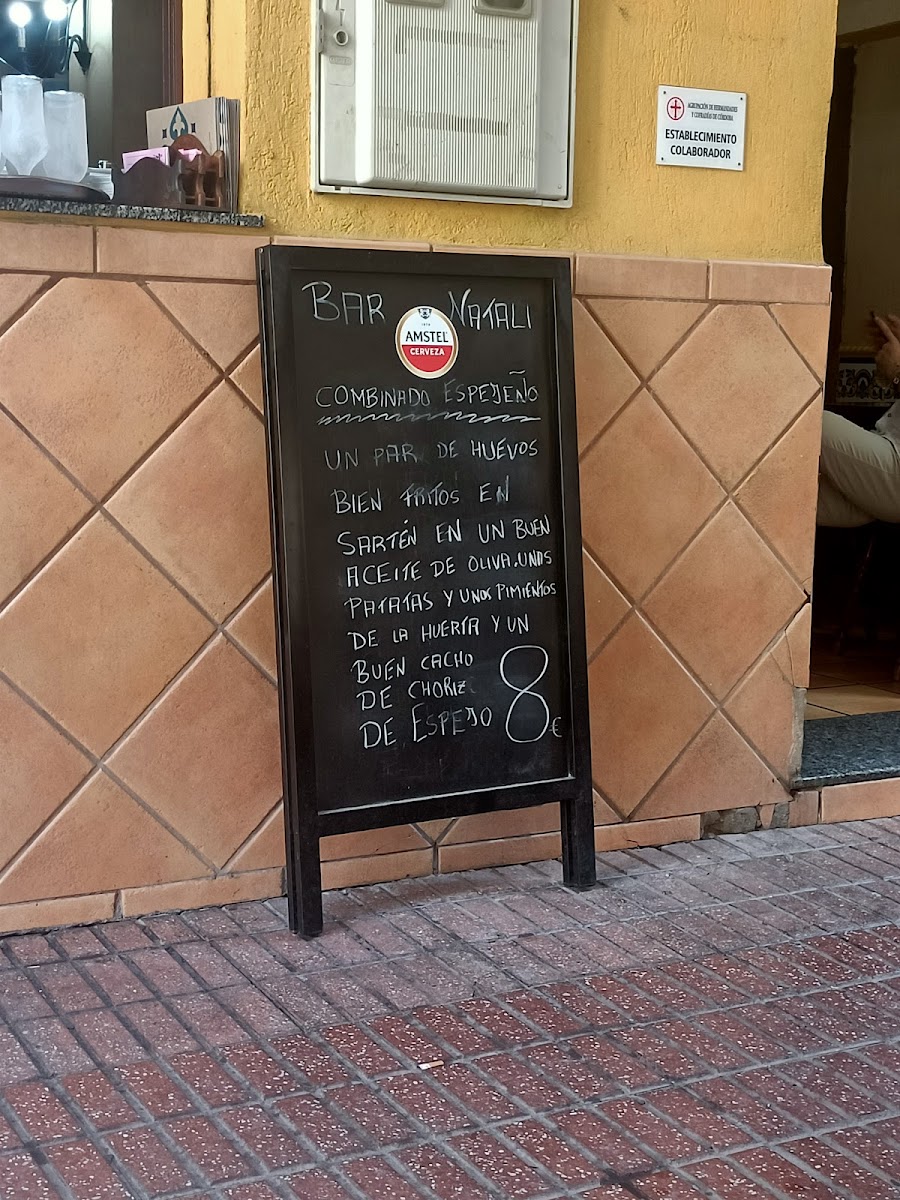 AGRUPACIÓN DE HERMANDADES
Y COFRADÍAS DE CÓRDOBA
ESTABLECIMIENTO
COLABORADOR
BAR NATALI
AMSTEL
CERVEZA
COMBINADO ESPEJEÑO
UN PAR DE HUEVOS
BIEN FRITOS EN
SARTÉN EN UN BUEN
ACEITE DE OLIVA. UNAS
PATATAS Y UNOS PIMIENTOS
DE LA HUERTA Y UN
BUEN CACHO
DE CHORIZ
DE ESPEJO 8€